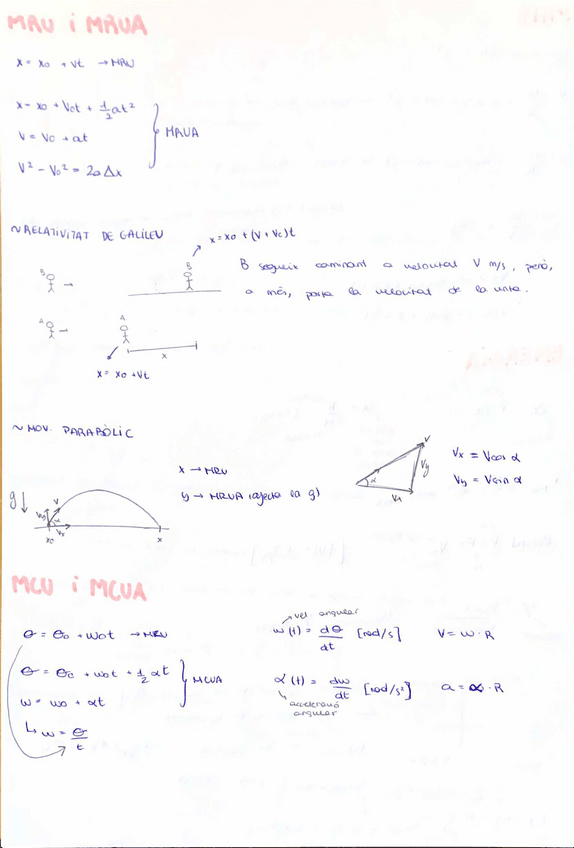 MRU i MRUA
x = x0 + vt → MRU
x = x0 + V0t + 1/2 at²
V = V0 + at
V² - V0² = 2aΔx
MRUA
~RELATIVITAT DE GALILEU
x = x0 + (V + Vc)t
B
B
B segueix caminant a velocitat V m/s, però,
a més, porta la velocitat de la cinta.
A
A
x
x = x0 + Vt
~ MOV. PARABÒLIC
x → MRU
y → MRUA (afecta la g)
g
V
Vy
α
Vx
x0
x
V
Vy
α
Vx
Vx = Vcos α
Vy = Vsin α
MCU i MCUA
θ = θ0 + ω0t → MRU
θ = θ0 + ω0t + 1/2 αt
ω = ω0 + αt
MCUA
↳ ω = θ/t
vel. angular
ω(t) = dθ/dt [rad/s]
V = ω · R
α(t) = dω/dt [rad/s²]
a = ∝ · R
acceleració
angular